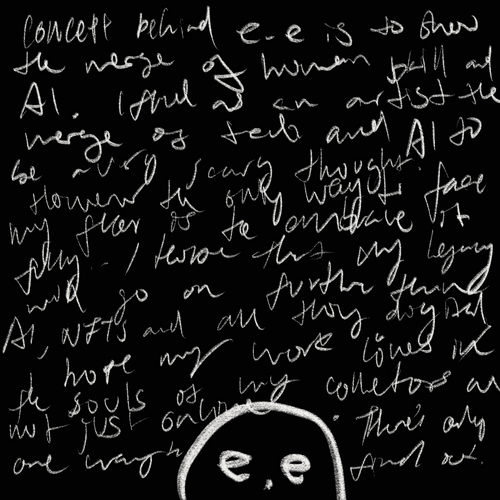 concept behind e-e is to show
the merge of human skill and
AI. I find as an artist the
merge of tech and AI to
be a very scary thought.
However the only way to face
my fear is to embrace it
fully. I that my legacy
will go on further than
AI, NFTs and all things digital
I hope my work lives in
the souls of my collectors and
not just online. There's only
one way to find out.
e.e